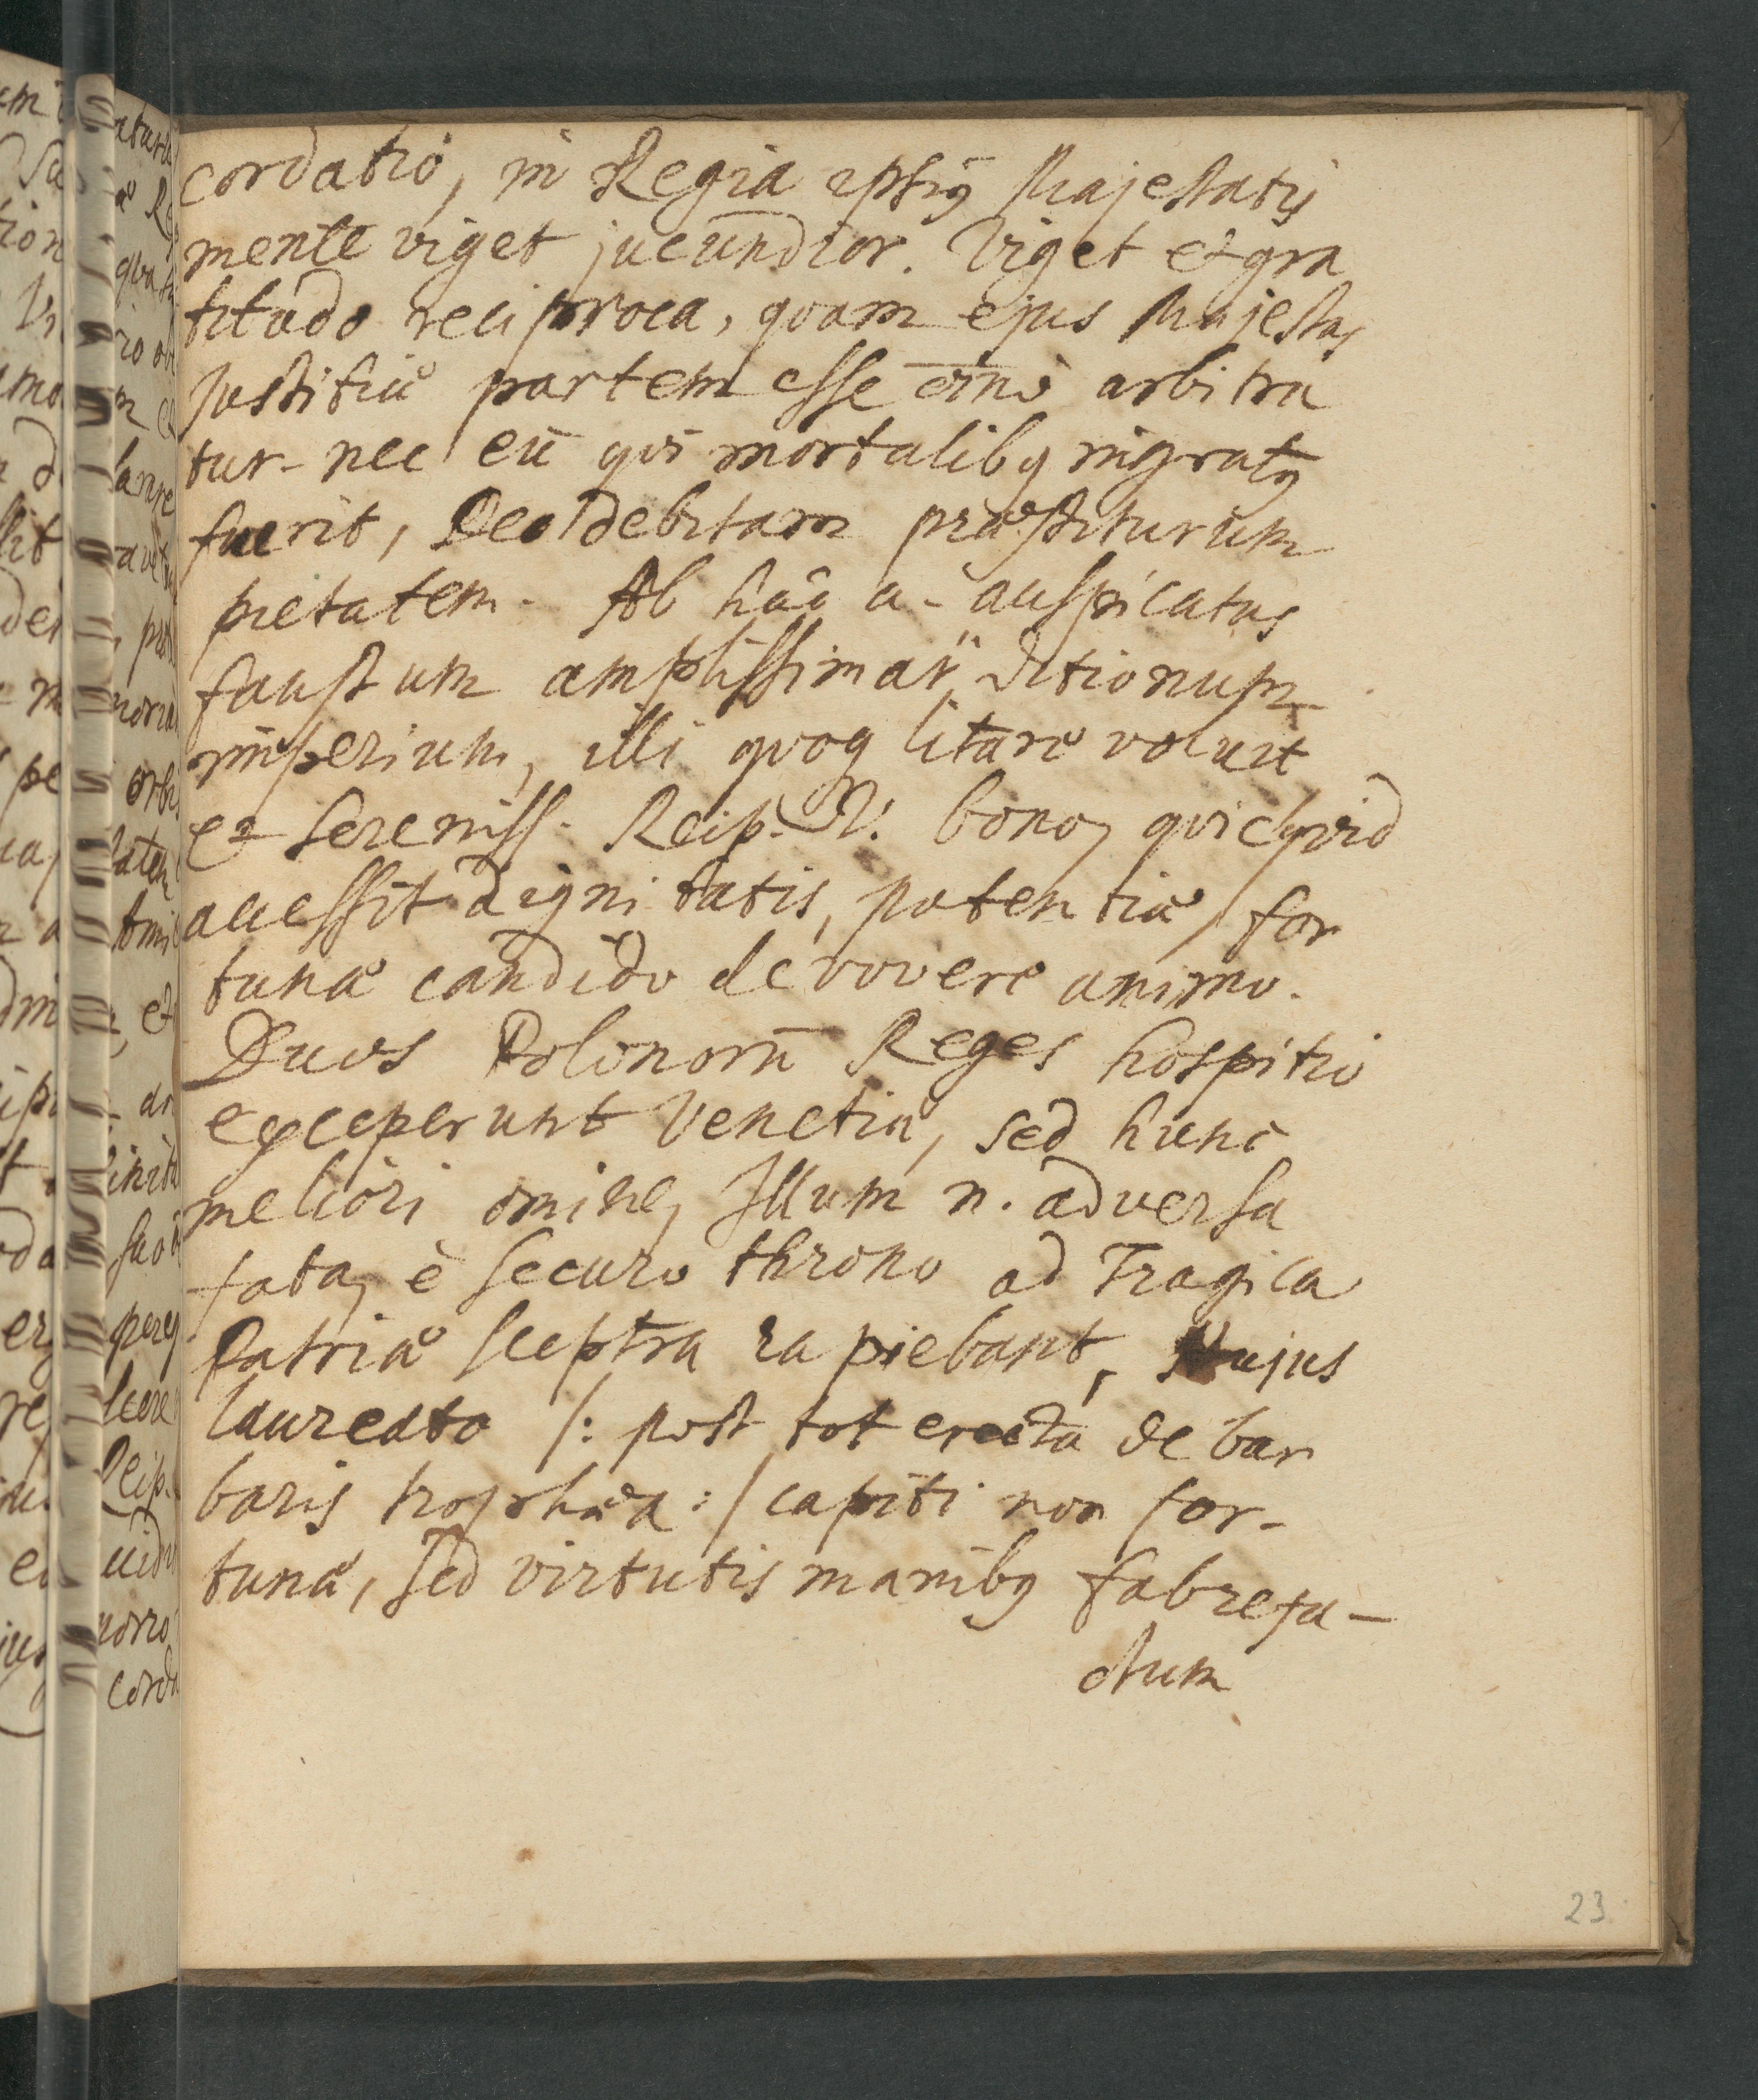 cordatio, in Regia ipsiꝰ Majestatis
mente viget jucundior. Viget et gra
titudo reciproca, quam ejus Majestas
Justitiæ partem esse oīno arbitra
tur. nec eū qui mortalibꝰ ingratꝰ
fuerit, Deo debitam præstiturum
pietatem. Ab hâc a. auspicatus
faustum amplissimar̄ ditionum
imperium, illi quoq litare voluit
et Sereniss. Reip. V. bono, quicquid
accessit dignitatis, potentiæ, for
tunæ candido devovere animo.
Duos Polonorū Reges hospitio
exceperunt Venetiæ, sed hunc
meliori omine, Illum n. adversa
fata, è securo throno ad Tragica
Patriæ sceptra rapiebant, Hujus
laureato /: post tot erecta de bar
baris trophæa :/ capiti non for-
tunæ, sed virtutis manibꝰ fabrefa-
ctum
23